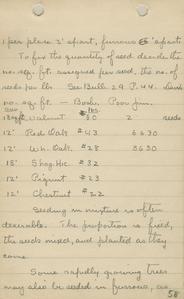 1 per place 3' apart, furrows 6' apart.
To fix the quantity of seed decide the
no. sq. ft. assigned per seed, the no. of
seeds per lb. See Bull. 29 P. 44.
no. sq. ft. —
Walnut 50 2 seeds
12' Red Oak #43 6630
12' Wh. Oak #28 3630
18' Shag. Hic. #32
12' Pignut #23
12' Chestnut #22
Seeding in mixture is often
desirable. The proportion is fixed,
the seeds mixed, and planted as they
come.
Some rapidly growing trees
may also be seeded in furrows, as
58